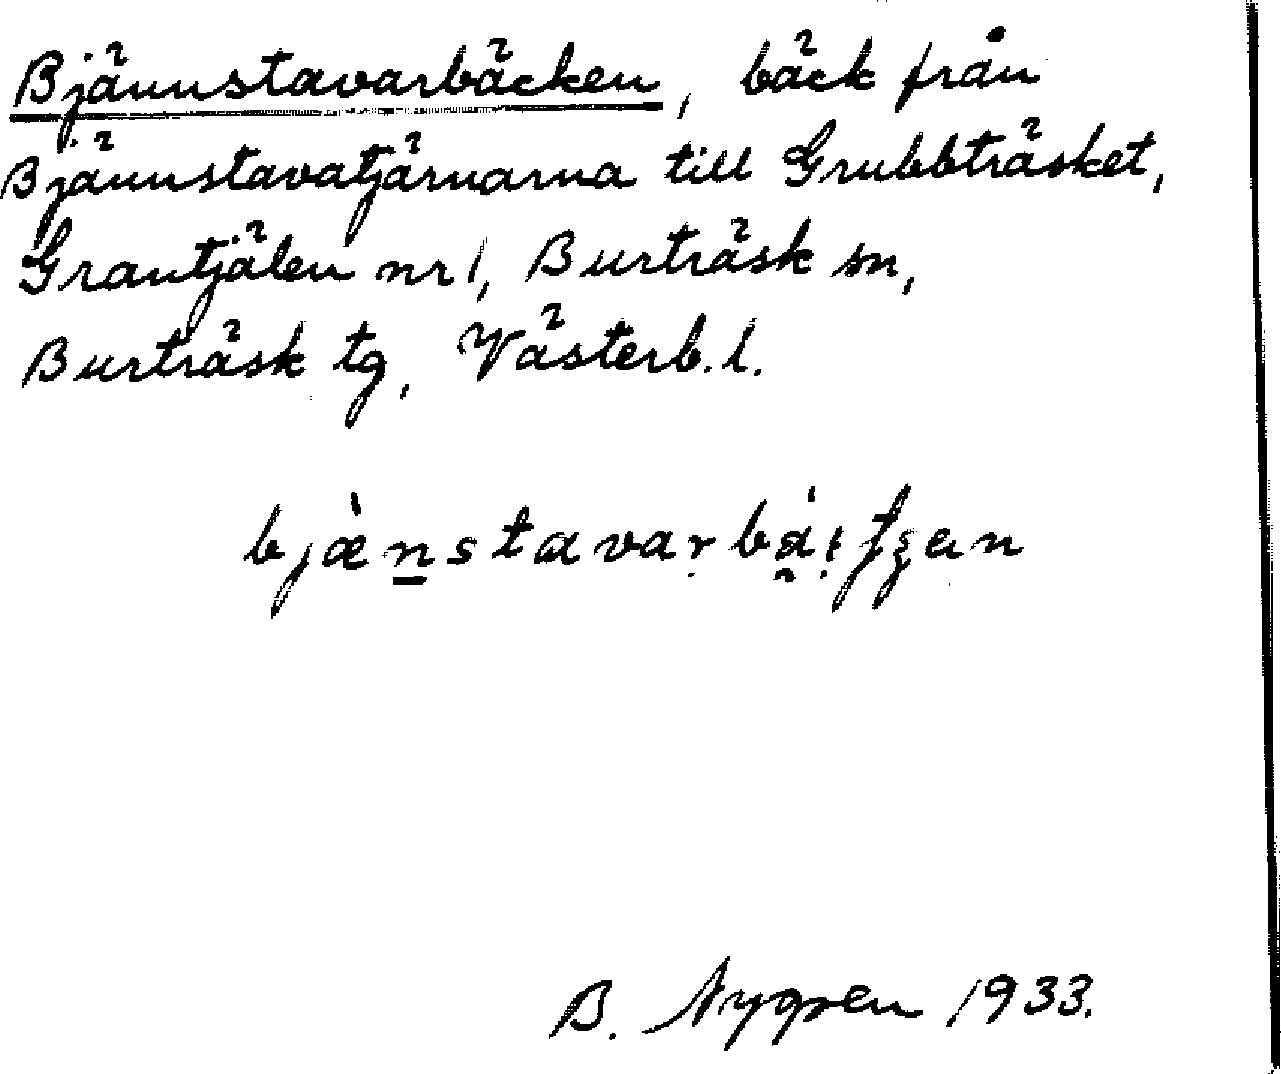 Bjännstavarbäcken, bäck från
Bjännstavatjärnarna till Grubbträsket,
Grantjälen nr 1, Burträsk sn,
Burträsk tg, Västerb.l.
B. Nygren 1933.